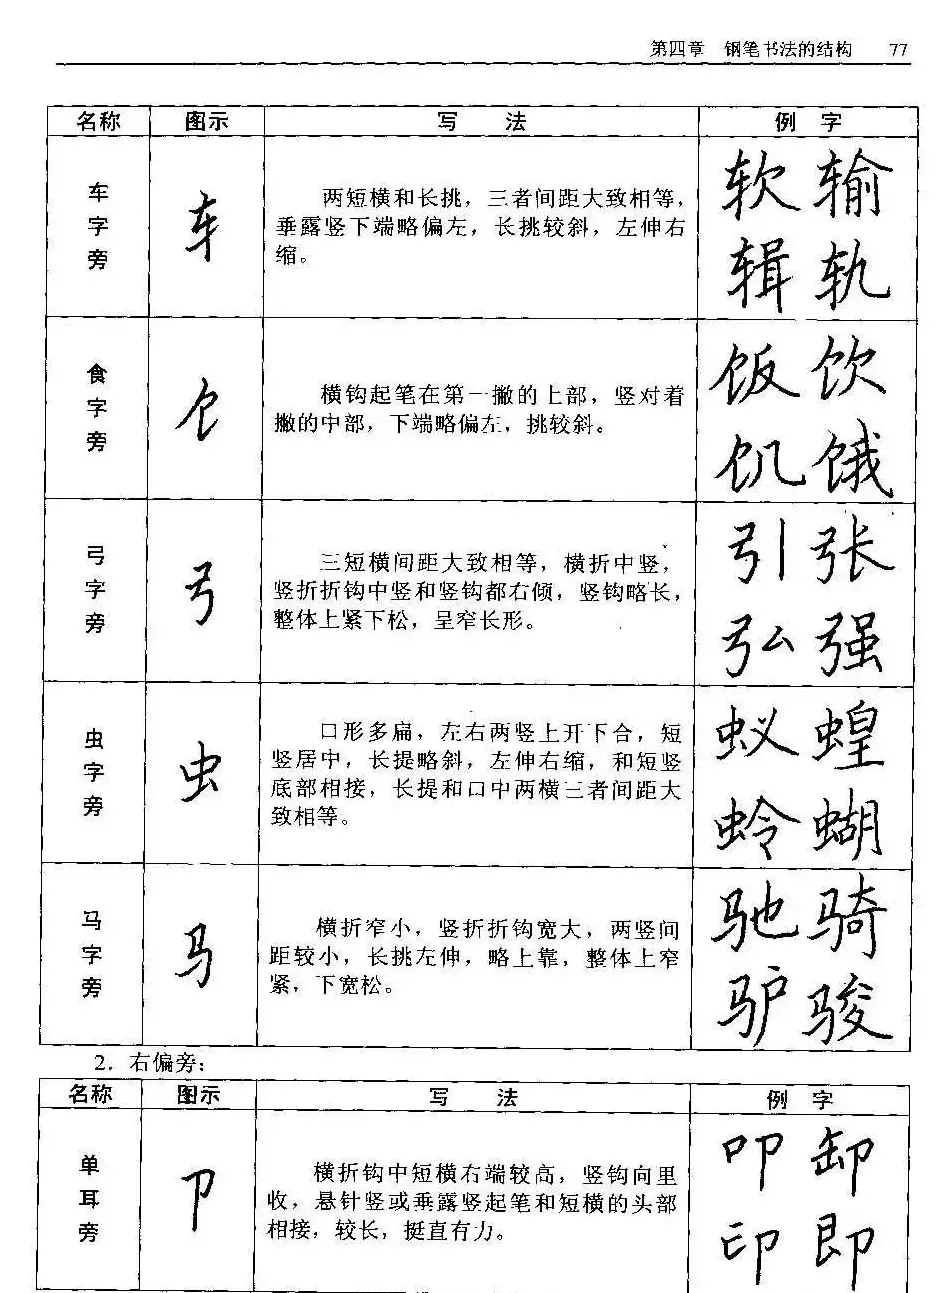 第四章 钢笔书法的结构 77
名称 图示 写 法 例 字
车字旁
车
两短横和长挑，三者间距大致相等，
垂露竖下端略偏左，长挑较斜，左伸右
缩。
软 输
辑 轨
食字旁
饣
横钩起笔在第一撇的上部，竖对着
撇的中部，下端略偏左，挑较斜。
饭 饮
饥 饿
弓字旁
弓
三短横间距大致相等，横折中竖，
竖折折钩中竖和竖钩都右倾，竖钩略长，
整体上紧下松，呈窄长形。
引 张
弘 强
虫字旁
虫
口形多扁，左右两竖上开下合，短
竖居中，长提略斜，左伸右缩，和短竖
底部相接，长提和口中两横三者间距大
致相等。
蚁 蝗
蛉 蝴
马字旁
马
横折窄小，竖折折钩宽大，两竖间
距较小，长挑左伸，略上靠，整体上窄
紧，下宽松。
驰 骑
驴 骏
2．右偏旁：
名称 图示 写 法 例 字
单耳旁
卩
横折钩中短横右端较高，竖钩向里
收，悬针竖或垂露竖起笔和短横的头部
相接，较长，挺直有力。
叩 卸
印 即